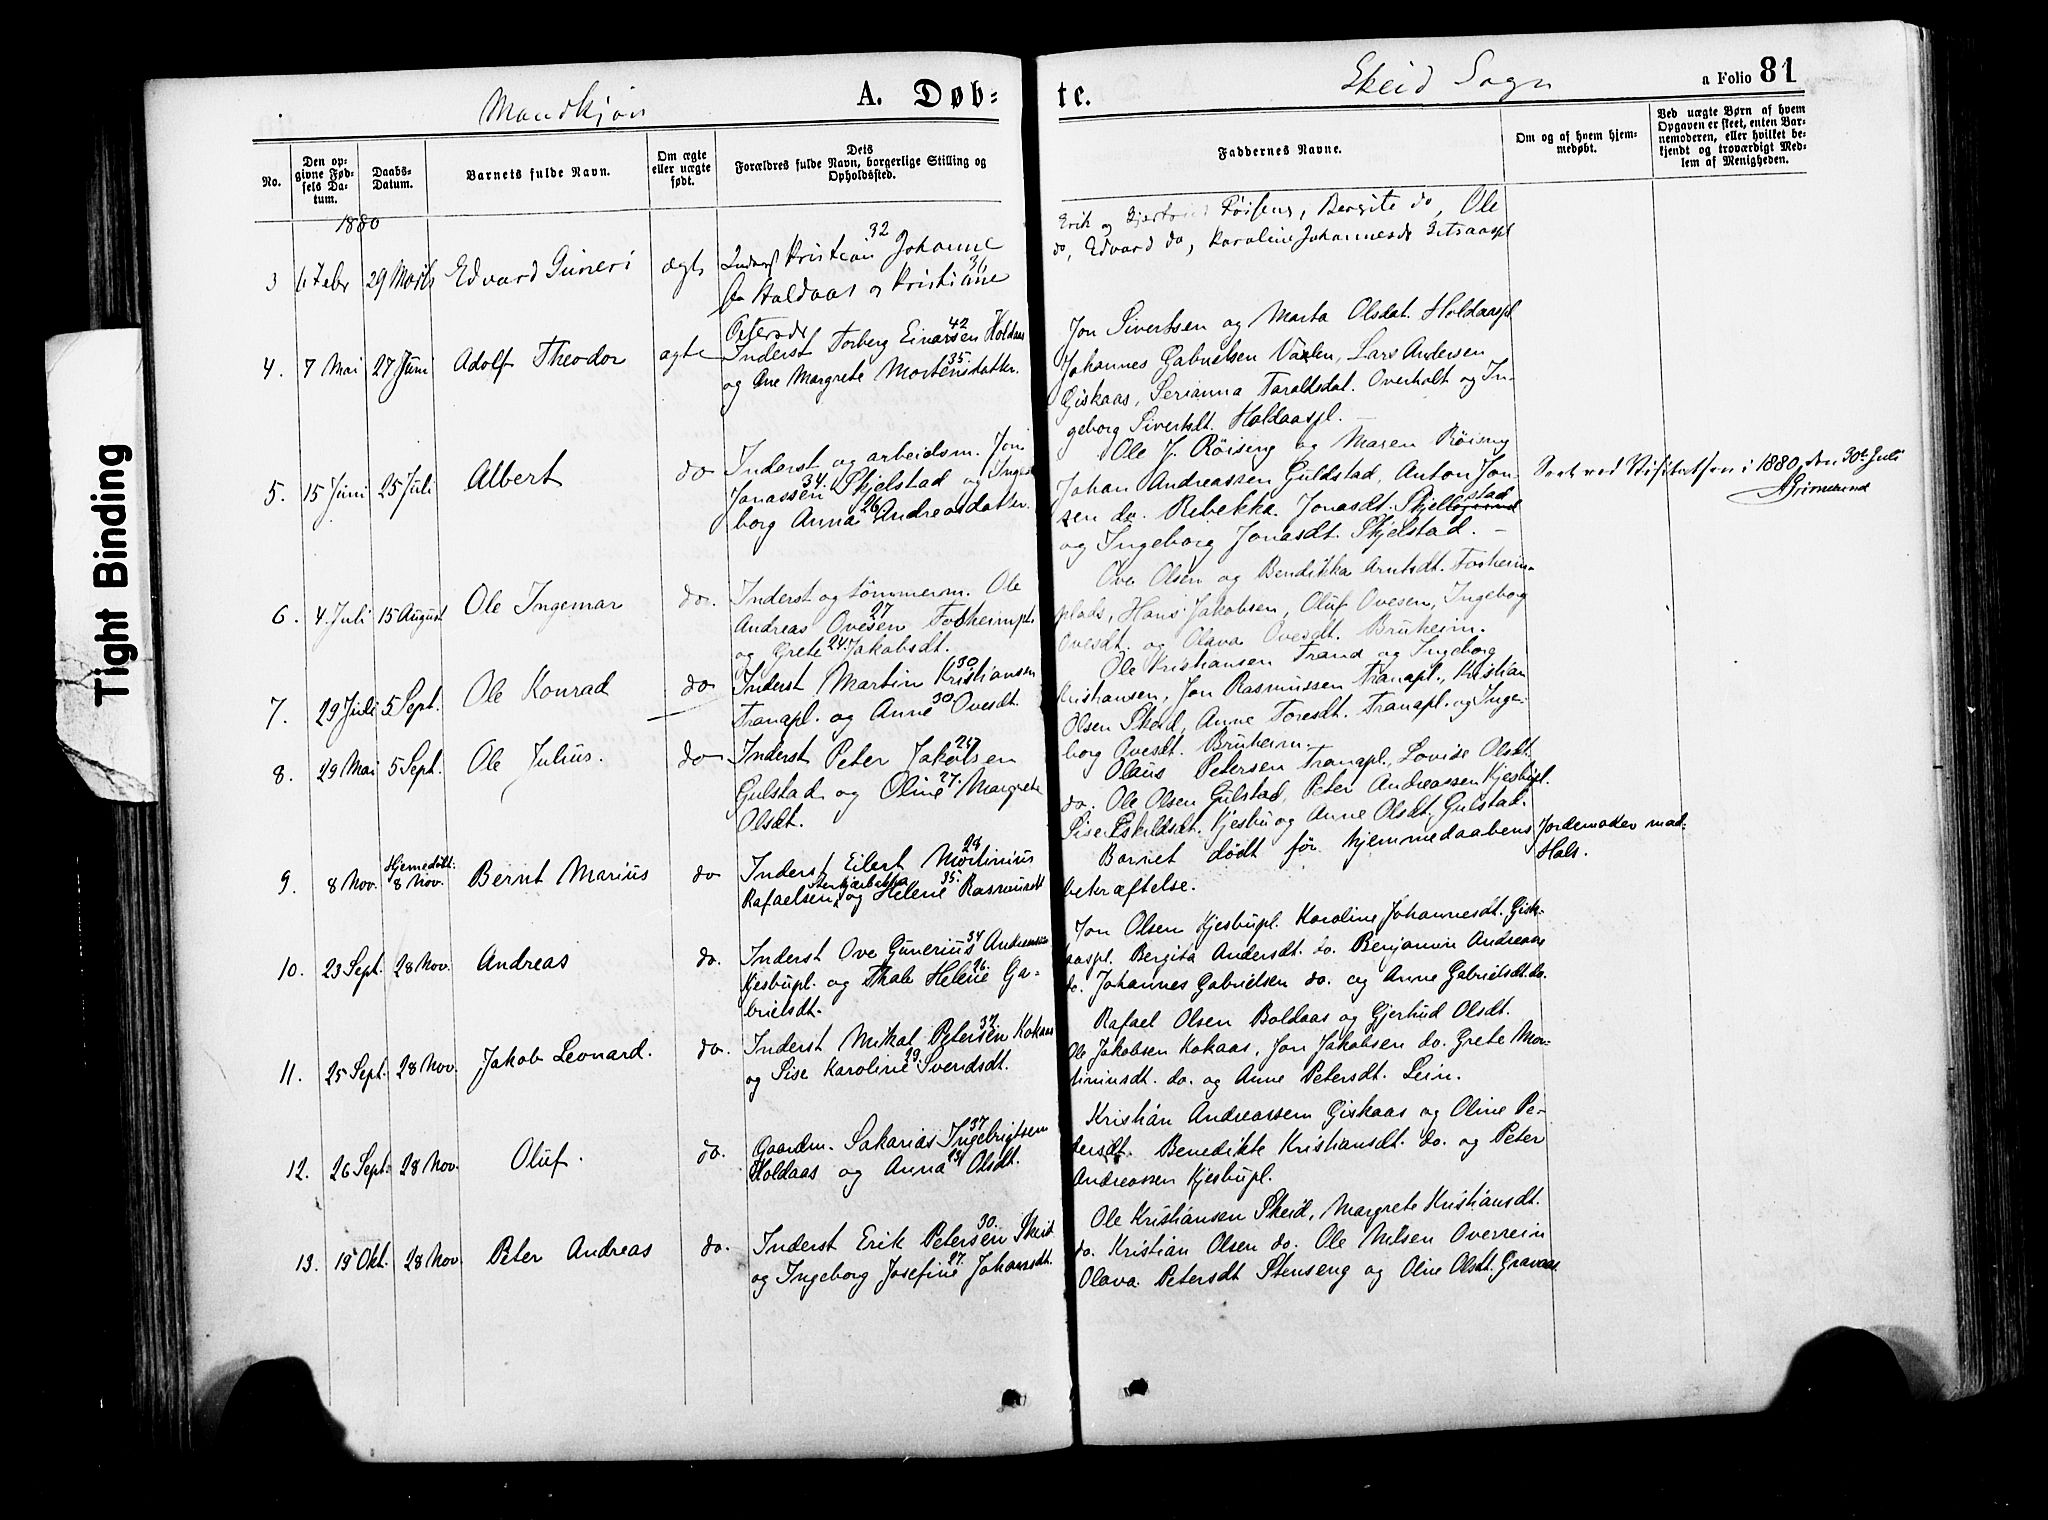 Mandkjøn
A. Døb-
te.
Skeid Sogn
a Folio 81
No.
Den op-
givne Fød-
sels Da-
tum.
Daabs-
Datum.
Barnets fulde Navn.
Om ægte
eller uægte
født.
Dets
Forældres fulde Navn, borgerlige Stilling og
Opholdssted.
Faddernes Navne.
Om og af hvem hjem-
medøbt.
Ved uægte Børn af hvem
Opgaven er skeet, enten Bar-
nemoderen, eller hvilket be-
kjendt og troværdigt Med-
lem af Menigheden.
1880
3 6 Febr 29 Marts Edvard Guneri ægte
Inderst Kristian 32 Johanne
fra Haldaas og Kristiane 31
Erik og Røiseng, Bergite do, Ole
do, Edvard do, Karoline Johannesdt
4. 7 Mai 27 Juni Adolf Theodor ægte
Inderst Torberg Einarsen 42 Holdaas
og Ane Margrete Mortensdatter. 35.
Jon Sivertsen og Marta Olsdat. Holdaaspl
Johannes Gabrielsen Lars Andersen
Giskaas, Serianna Taraldsdat. Overholt og In-
geborg Sivertsdt. Holdaaspl. –
5. 15 Juni 25 Juli Albert do
Inderst og arbeidsm. Jon
Jonassen 34. Skjelstad og Inge-
borg Anna 26 Andreasdatter.
Ole J. Røiseng og Maren Røiseng
Johan Andreassen Guldstad, Anton Jon-
sen do. Rebekka Jonasdt. Skjelstad
og Ingeborg Jonasdt. Skjelstad. –
Seet ved Visitatsen i 1880, den 30te Juli
Grimelund
6. 4 Juli 15 August Ole Ingemar do.
Inderst og tømmerm. Ole
Andreas Ovesen 27 Fosheimpl.
og Grete 24. Jakobsdt.
Ove Olsen og Bendikka Arntsdt. Fosheim-
plads, Hans Jakobsen, Oluf Ovesen, Ingeborg
Ovesdt. og Olava Ovesdt. Bruheim.
7. 29 Juli 5 Sept. Ole Konrad do
Inderst Martin Kristiansen 30
Tranapl. og Anne 30 Ovesdt.
Ole Kristiansen Trana og Ingeborg
Kristiansen, Jon Rasmussen Tranapl., Kristian
Olsen Skeid, Anne Toresdt. Tranapl. og Inge-
borg Ovesdt. Bruheim.
8. 29 Mai 5 Sept. Ole Julius. do
Inderst Peter Jakobsen
Gulstad og Oline 27. Margrete
Olsdt.
Olaus Petersen Tranapl., Lovise Olsdt.
do. Ole Olsen Gulstad, Peter Andreassen Kjesbupl.
Sise Eskildsdt. Kjesbu og Anne Olsdt. Gulstad.
9. 8 Nov. Hjemedøbt: 8 Nov. Bernt Marius do
Inderst Eilert Mortinius 28
Rafaelsen og Helene 35. Rasmusdt
Barnet dødt før hjemmedaabens
bekræftelse.
Jordemoder mad-
Hals.
10. 23 Sept. 28 Nov. Andreas do.
Inderst Ove Gunerius 34 Andreassen
Kjesbupl. og Thale Helene 26. Ga-
brielsdt.
Jon Olsen Kjesbupl. Karoline Johannesdt. Gisk-
aaspl. Bergita Andersdt. do. Benjamin Andreas
do. Johannes Gabrielsen do. og Anne Gabrielsdt. do.
11. 25 Sept. 28 Nov. Jakob Leonard. do.
Inderst Mikal Petersen 37. Kokaas
og Sise Karoline 29. Svendsdt.
Rafael Olsen Boldaas og Gjertrud Olsdt.
Ole Jakobsen Kokaas, Jon Jakobsen do. Grete Mor-
tiniusdt. do. og Anne Petersdt. Lein.
12. 26 Sept. 28 Nov. Oluf. do.
Gaardm. Sakarias Ingebrigtsen 37
Holdaas og Anna 31 Olsdt.
Kristian Andreassen Giskaas og Oline Pe-
dersdt. Benedikte Kristiansdt. do. og Peter
Andreassen Kjesbupl.
13. 15 Okt. 28 Nov. Peter Andreas do.
Inderst Erik Petersen 30. Skeid
og Ingeborg Josefine 27. Johansdt.
Ole Kristiansen Skeid, Margrete Kristiansdt.
do. Kristian Olsen do. Ole Nilsen Overrein
Olava Petersdt Stenseng og Oline Olsdt. Gravaas
Tight Binding